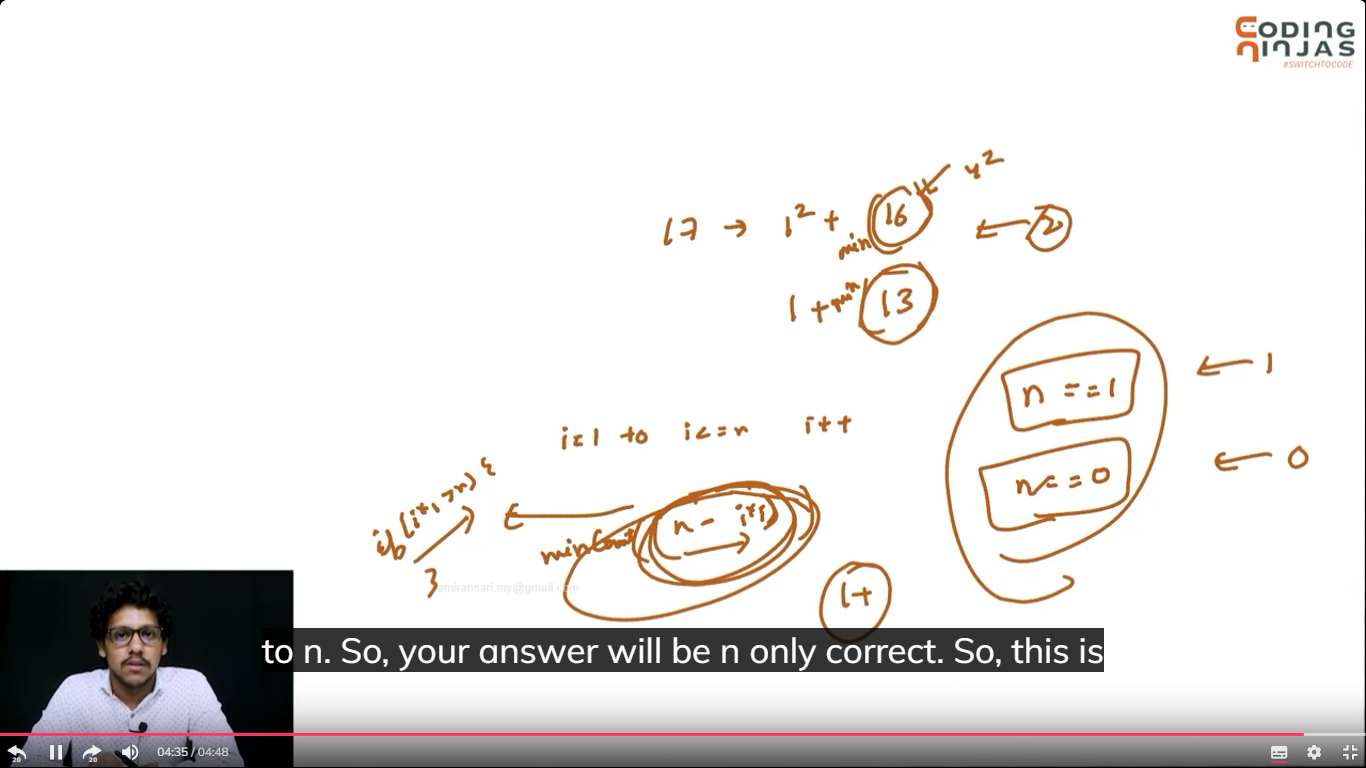 CODING
NINJAS
#SWITCHTOCODE
4²
17 → 1² + 16 ← 2
min
1 + min 13
n == 1 ← 1
i=1 to i<=n i++
n<=0 ← 0
if(i*i>n) {
minCount (n - i*i)
}
amiransari.my@gmail.com
1+
to n. So, your answer will be n only correct. So, this is
20 20 04:35 / 04:48